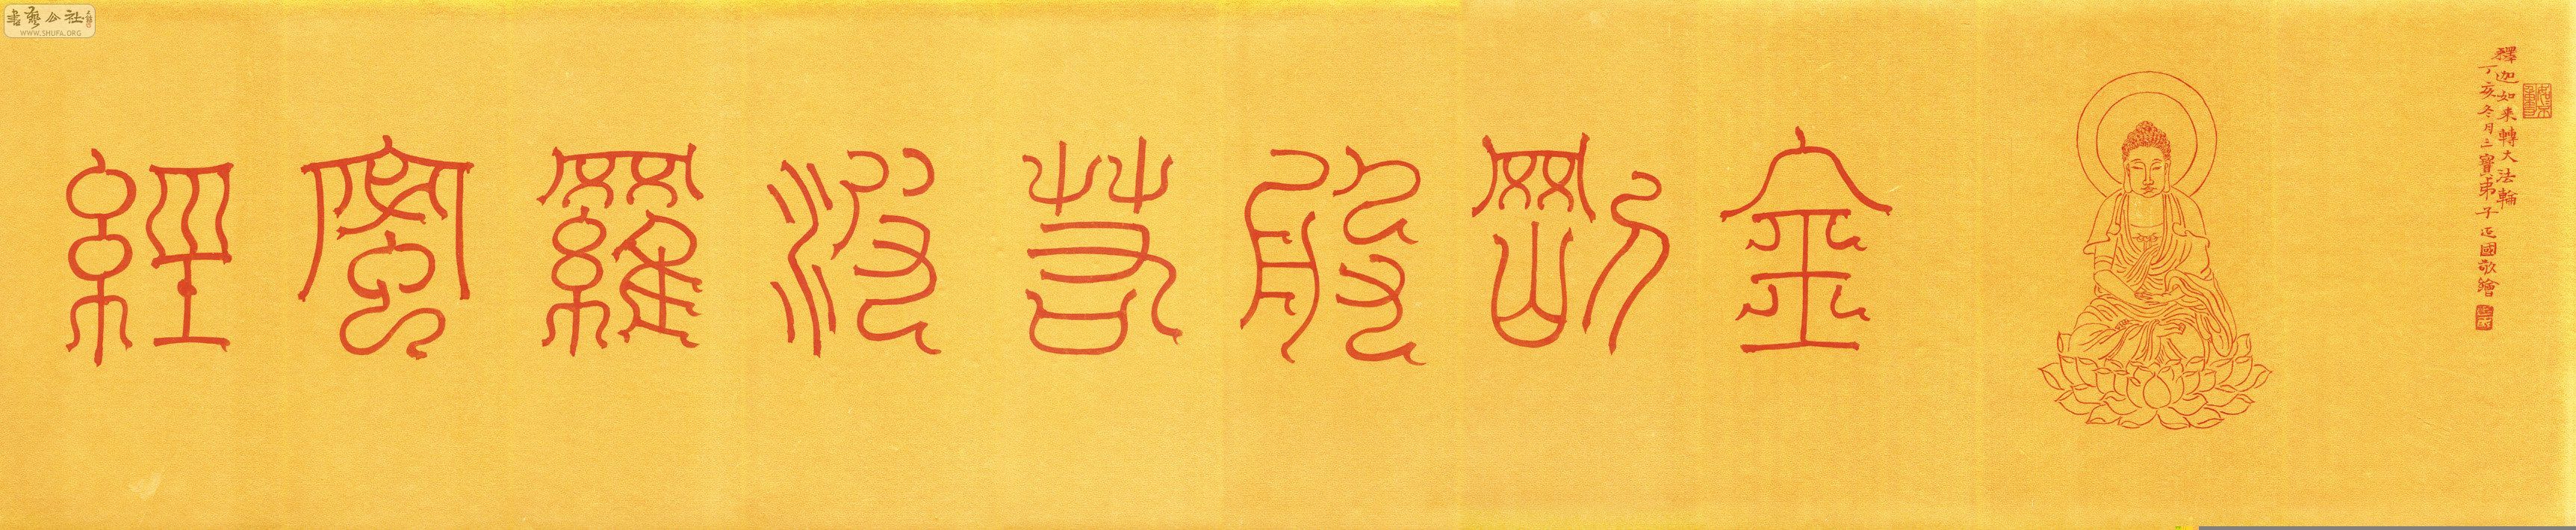 釋迦如来轉大法輪
丁亥冬月三寶弟子正國敬繪
金剛般若波羅蜜經
書藝公社
WWW.SHUFA.ORG